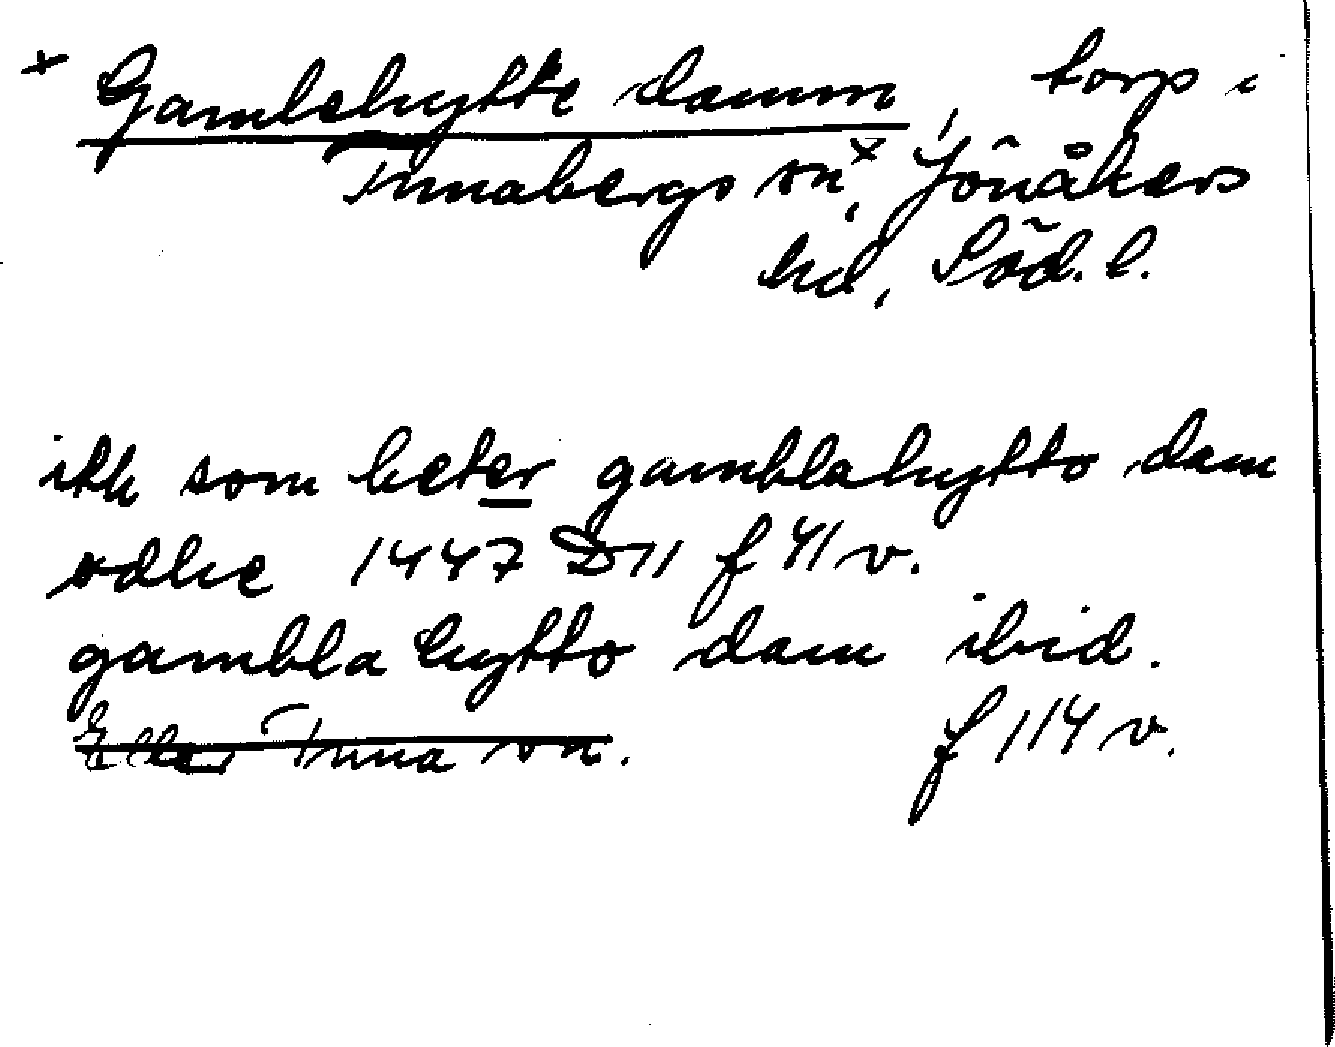 × Gamlehytte damm, torp i
Tunabergs sn×, Jönåkers
hd, Söd. l.
ith som heter gamblahytto dam
odhe 1447 D11 f 41 v.
gambla hytto dam ibid.
Eller Tuna sn. f 114 v.